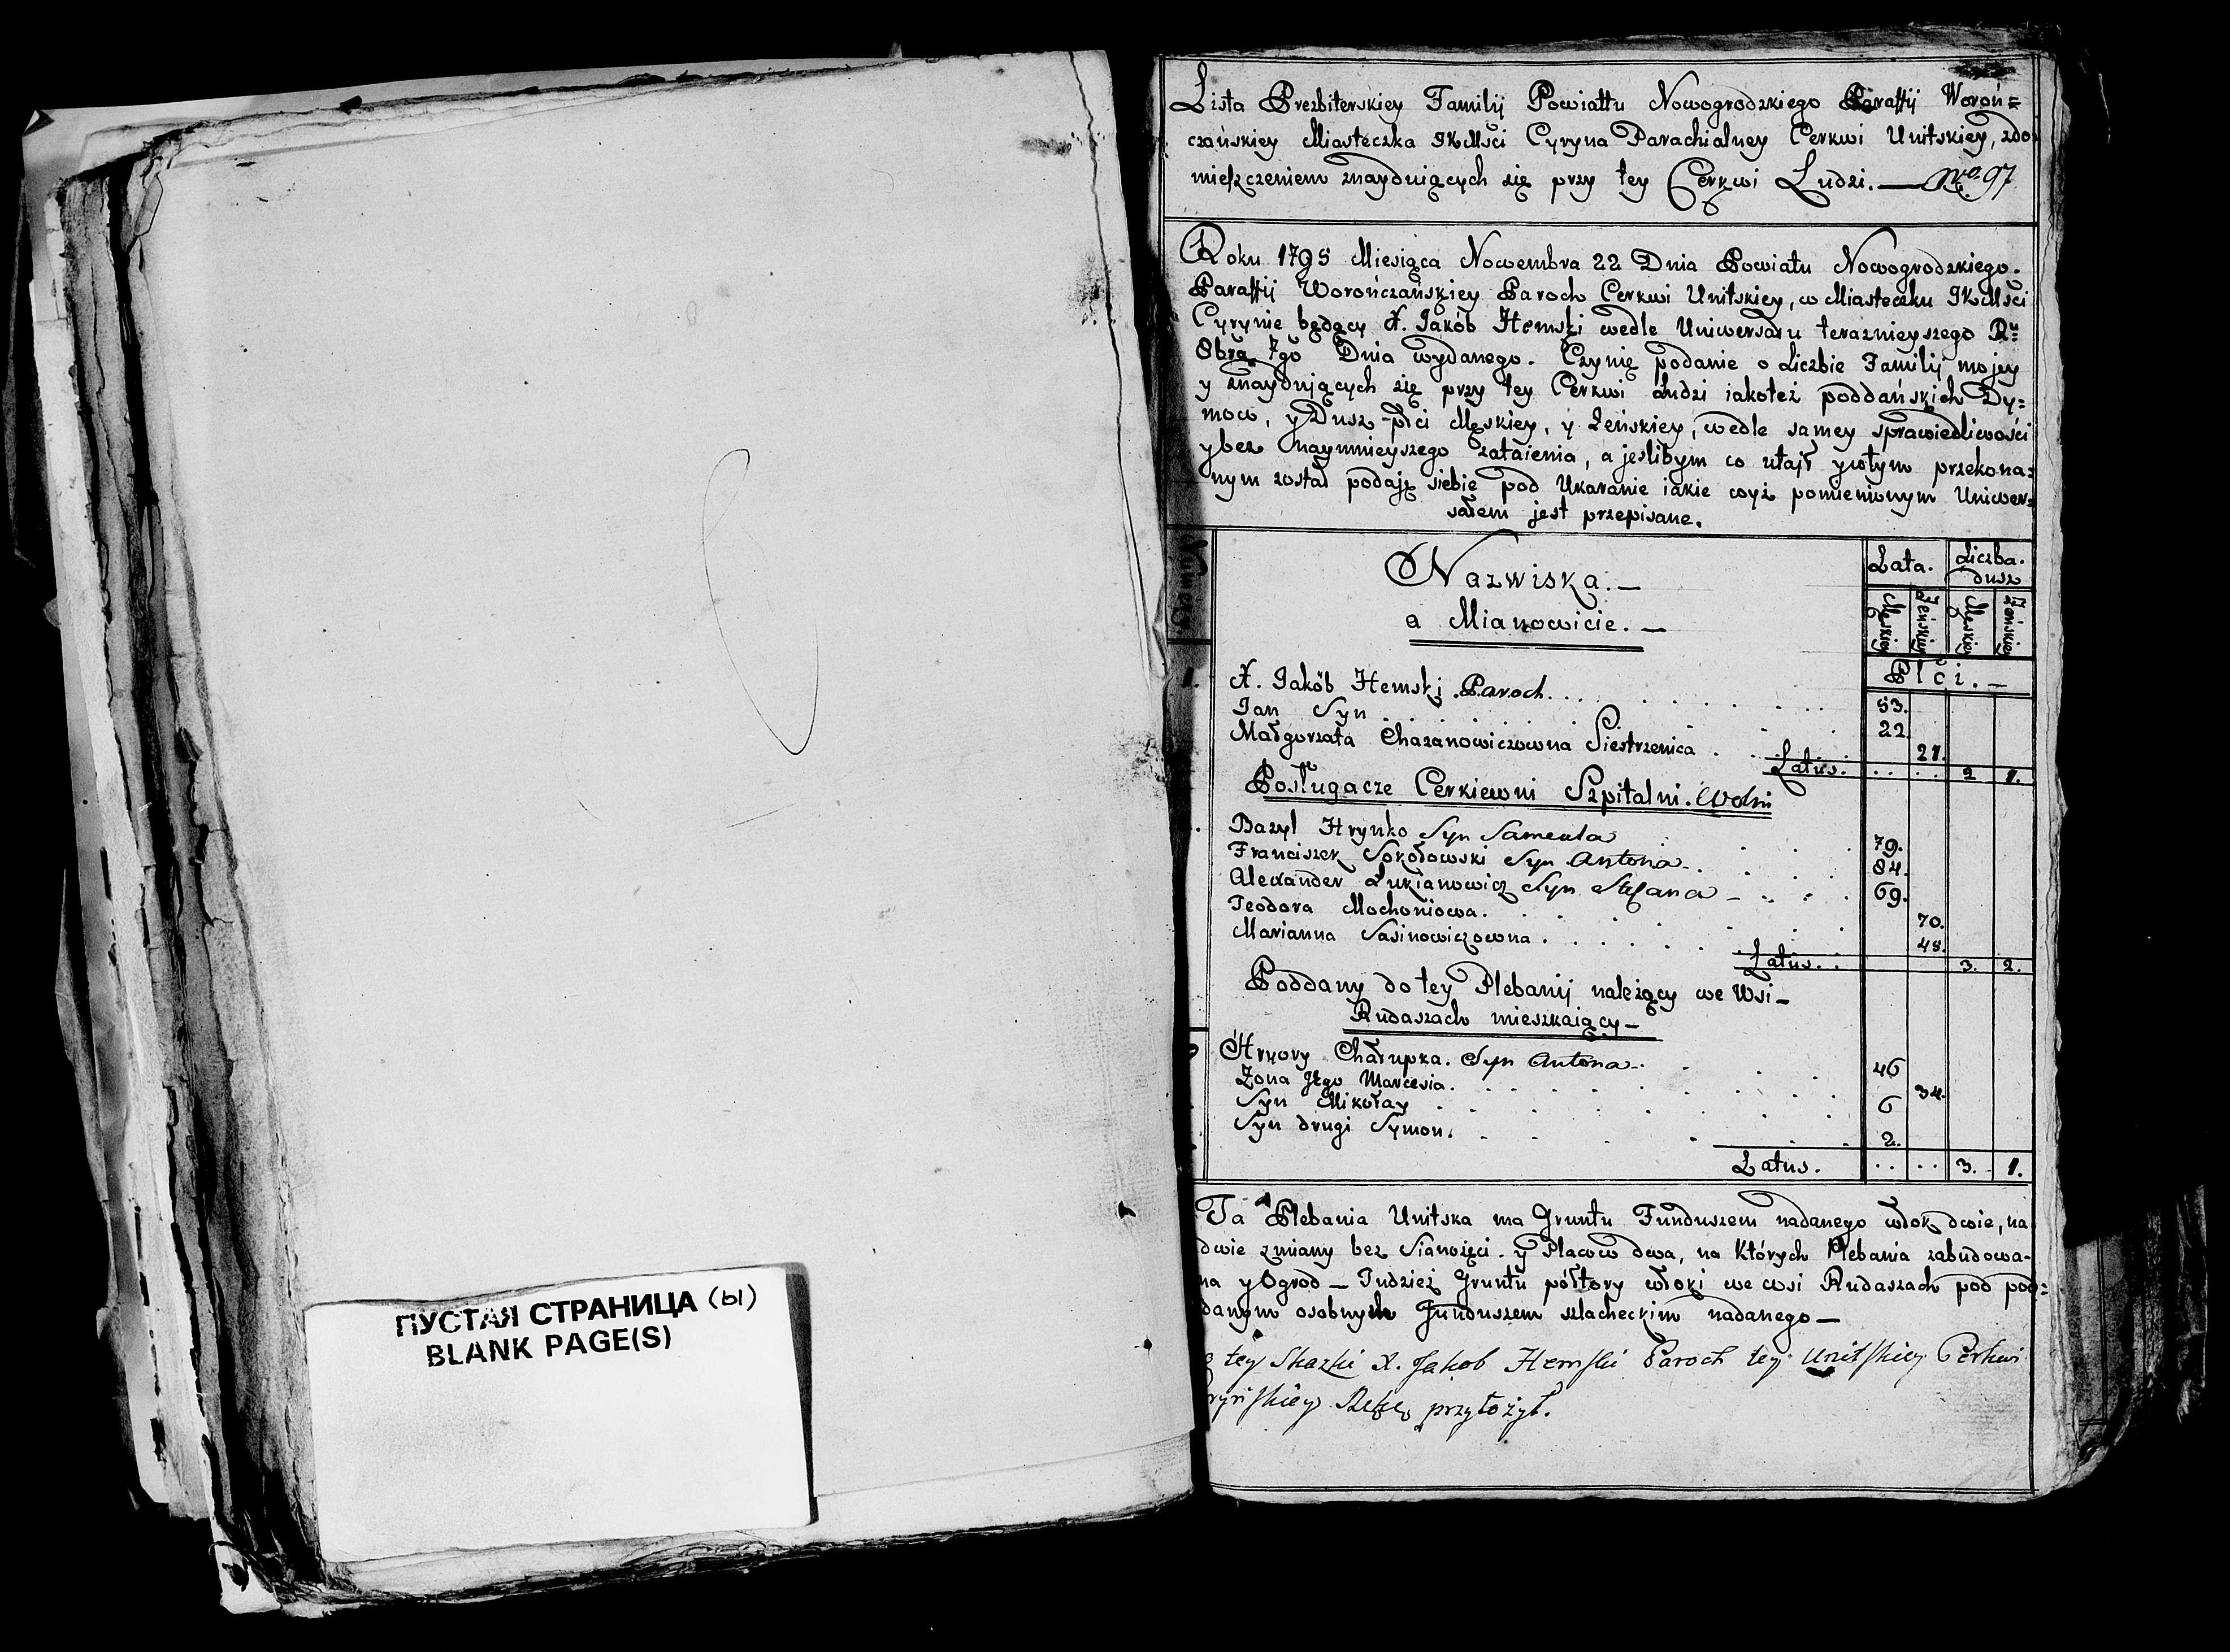 ПУСТАЯ СТРАНИЦА (Ы)
BLANK PAGE(S)
Lista Prezbiterskiey Familij Powiattu Nowogrodzkiego Paraffij Woroń=
czańskiey Miasteczka JKMści Cyryna Parachialney Cerkwi Unitskiey, zdo
mieszczeniem znayduiących się przy tey Cerkwi Ludzi. — Nro. 97
Roku 1795 Miesiąca Nowembra 22 Dnia Powiatu Nowogrodzkiego.
Paraffij Worończańskiey Paroch Cerkwi Unitskiey, w Miasteczku JKMści
Cyrynie będący X. Jakób Hemski wedle Uniwersału teraznieyszego Ru
8bra 7go Dnia wydanego. Czynię podanie o Liczbie Familij mojey
y znaydujących się przy tey Cerkwi Ludzi iakoteż poddańskich Dy=
mow, y Dusz płci Męskiey, y Żeńskiey, wedle samey sprawiedliwości
y bez naymnieyszego zataienia, a jeslibym co utaił y wtym przekona=
nym został podaję siebie pod Ukaranie iakie wyż pomienionym Uniwer=
sałem jest przepisane.
Nazwiska. —
a Mianowicie. —
Lata. Liczba dusz
Męskiey Żeńskiey Męskiey Żeńskiey
Płci. —
1.
X. Jakób Hemski Paroch. 53.
Jan Syn 22.
Małgorzata Chazanowiczowna Siestrzenica 21.
Latus. 2 1.
Posługacze Cerkiewni Szpitalni. Wolni
Bazyl Hrynko Syn Samuela 79.
Franciszek Sokołowski Syn Antona 84.
Alexander Łukianowicz Syn Stefana 69.
Teodora Mochoniowa. 70.
Marianna Sasinowiczowna. 48.
Latus. 3. 2.
Poddany do tey Plebanij należący we Wsi —
Rudaszach mieszkaiący —
Hrhory Chałupka. Syn Antona 46
Żona Jego Marcesia. 34.
Syn Mikołay 6
Syn drugi Symon. 2.
Latus. 3. 1.
Ta Plebania Unitska ma Gruntu Funduszem nadanego włok dwie, na
dwie zmiany bez Sianożęci. y Placow dwa, na których Plebania zabudowa-
na y Ogrod — Tudzież Gruntu półtory włoki we wsi Rudaszach pod pod=
danym osobnym Funduszem szlacheckim nadanego —
tey Skazki X. Jakob Hemski Paroch tey Unitskiey Cerkwi
ryńskiey Rękę przyłożył.